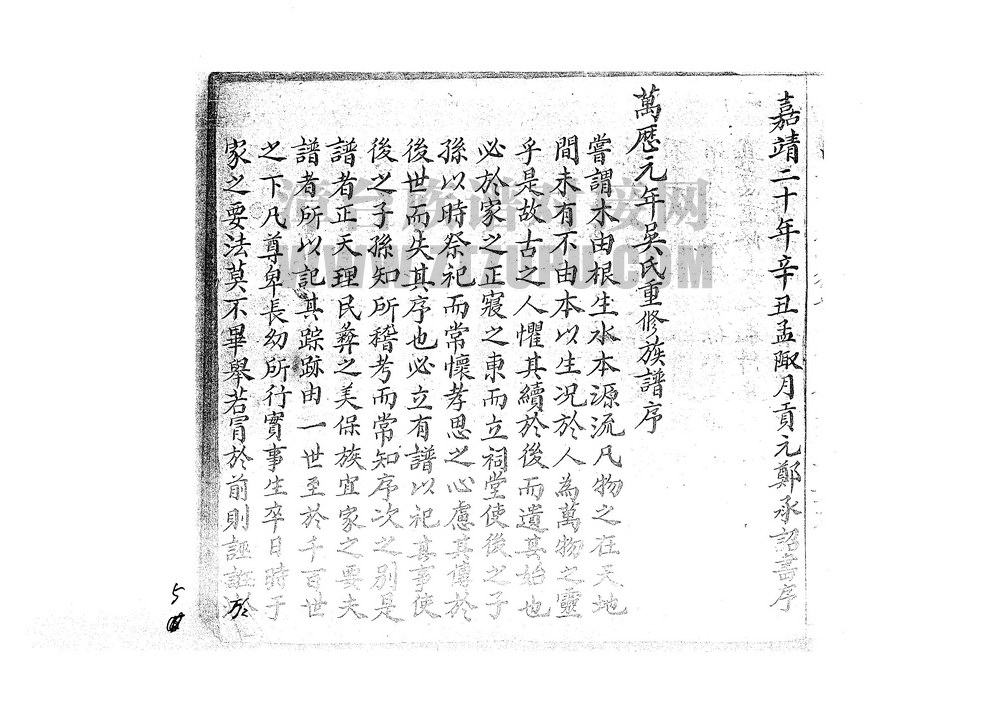 嘉靖二十年辛丑孟陬月貢元鄭承詔書序
萬歷元年吳氏重修族譜序
嘗謂木由根生水本源流凡物之在天地
間未有不由本以生况於人為萬物之靈
乎是故古之人懼其續於後而遺其始也
必於家之正寢之東而立祠堂使後之子
孫以時祭祀而常懷孝思之心慮其傳於
後世而失其序也必立有譜以祀其事使
後之子孫知所稽考而常知序次之別是
譜者正天理民彝之美保族宜家之要夫
譜者所以記其踪跡由一世至於千百世
之下凡尊卑長幼所行實事生卒日時于
家之要法莫不畢舉若冐於前則誣誑於
WWW.TZUPU.COM
5